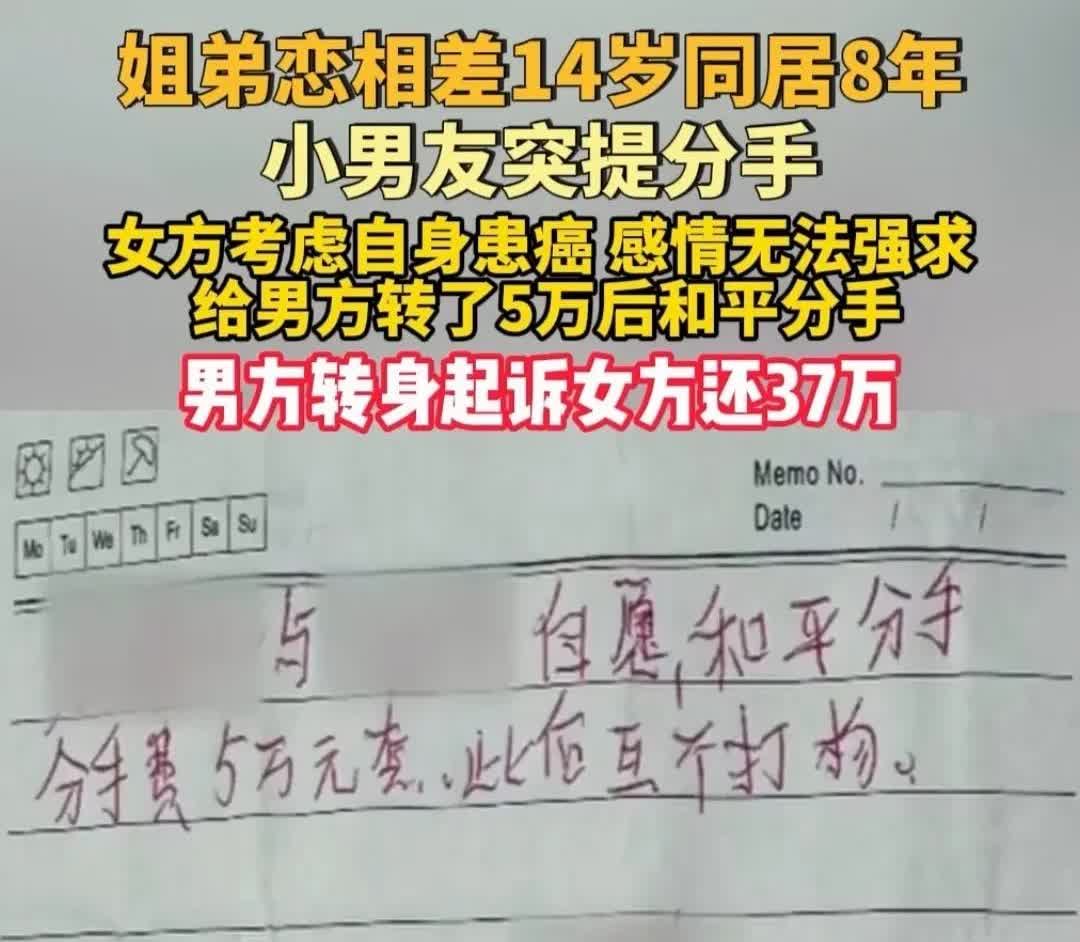 姐弟恋相差14岁同居8年
小男友突提分手
女方考虑自身患癌 感情无法强求
给男方转了5万后和平分手
男方转身起诉女方还37万
Memo No.
Date / /
Mo Tu We Th Fr Sa Su
与 自愿,和平分手
分手费5万元整.此后互不打扰。